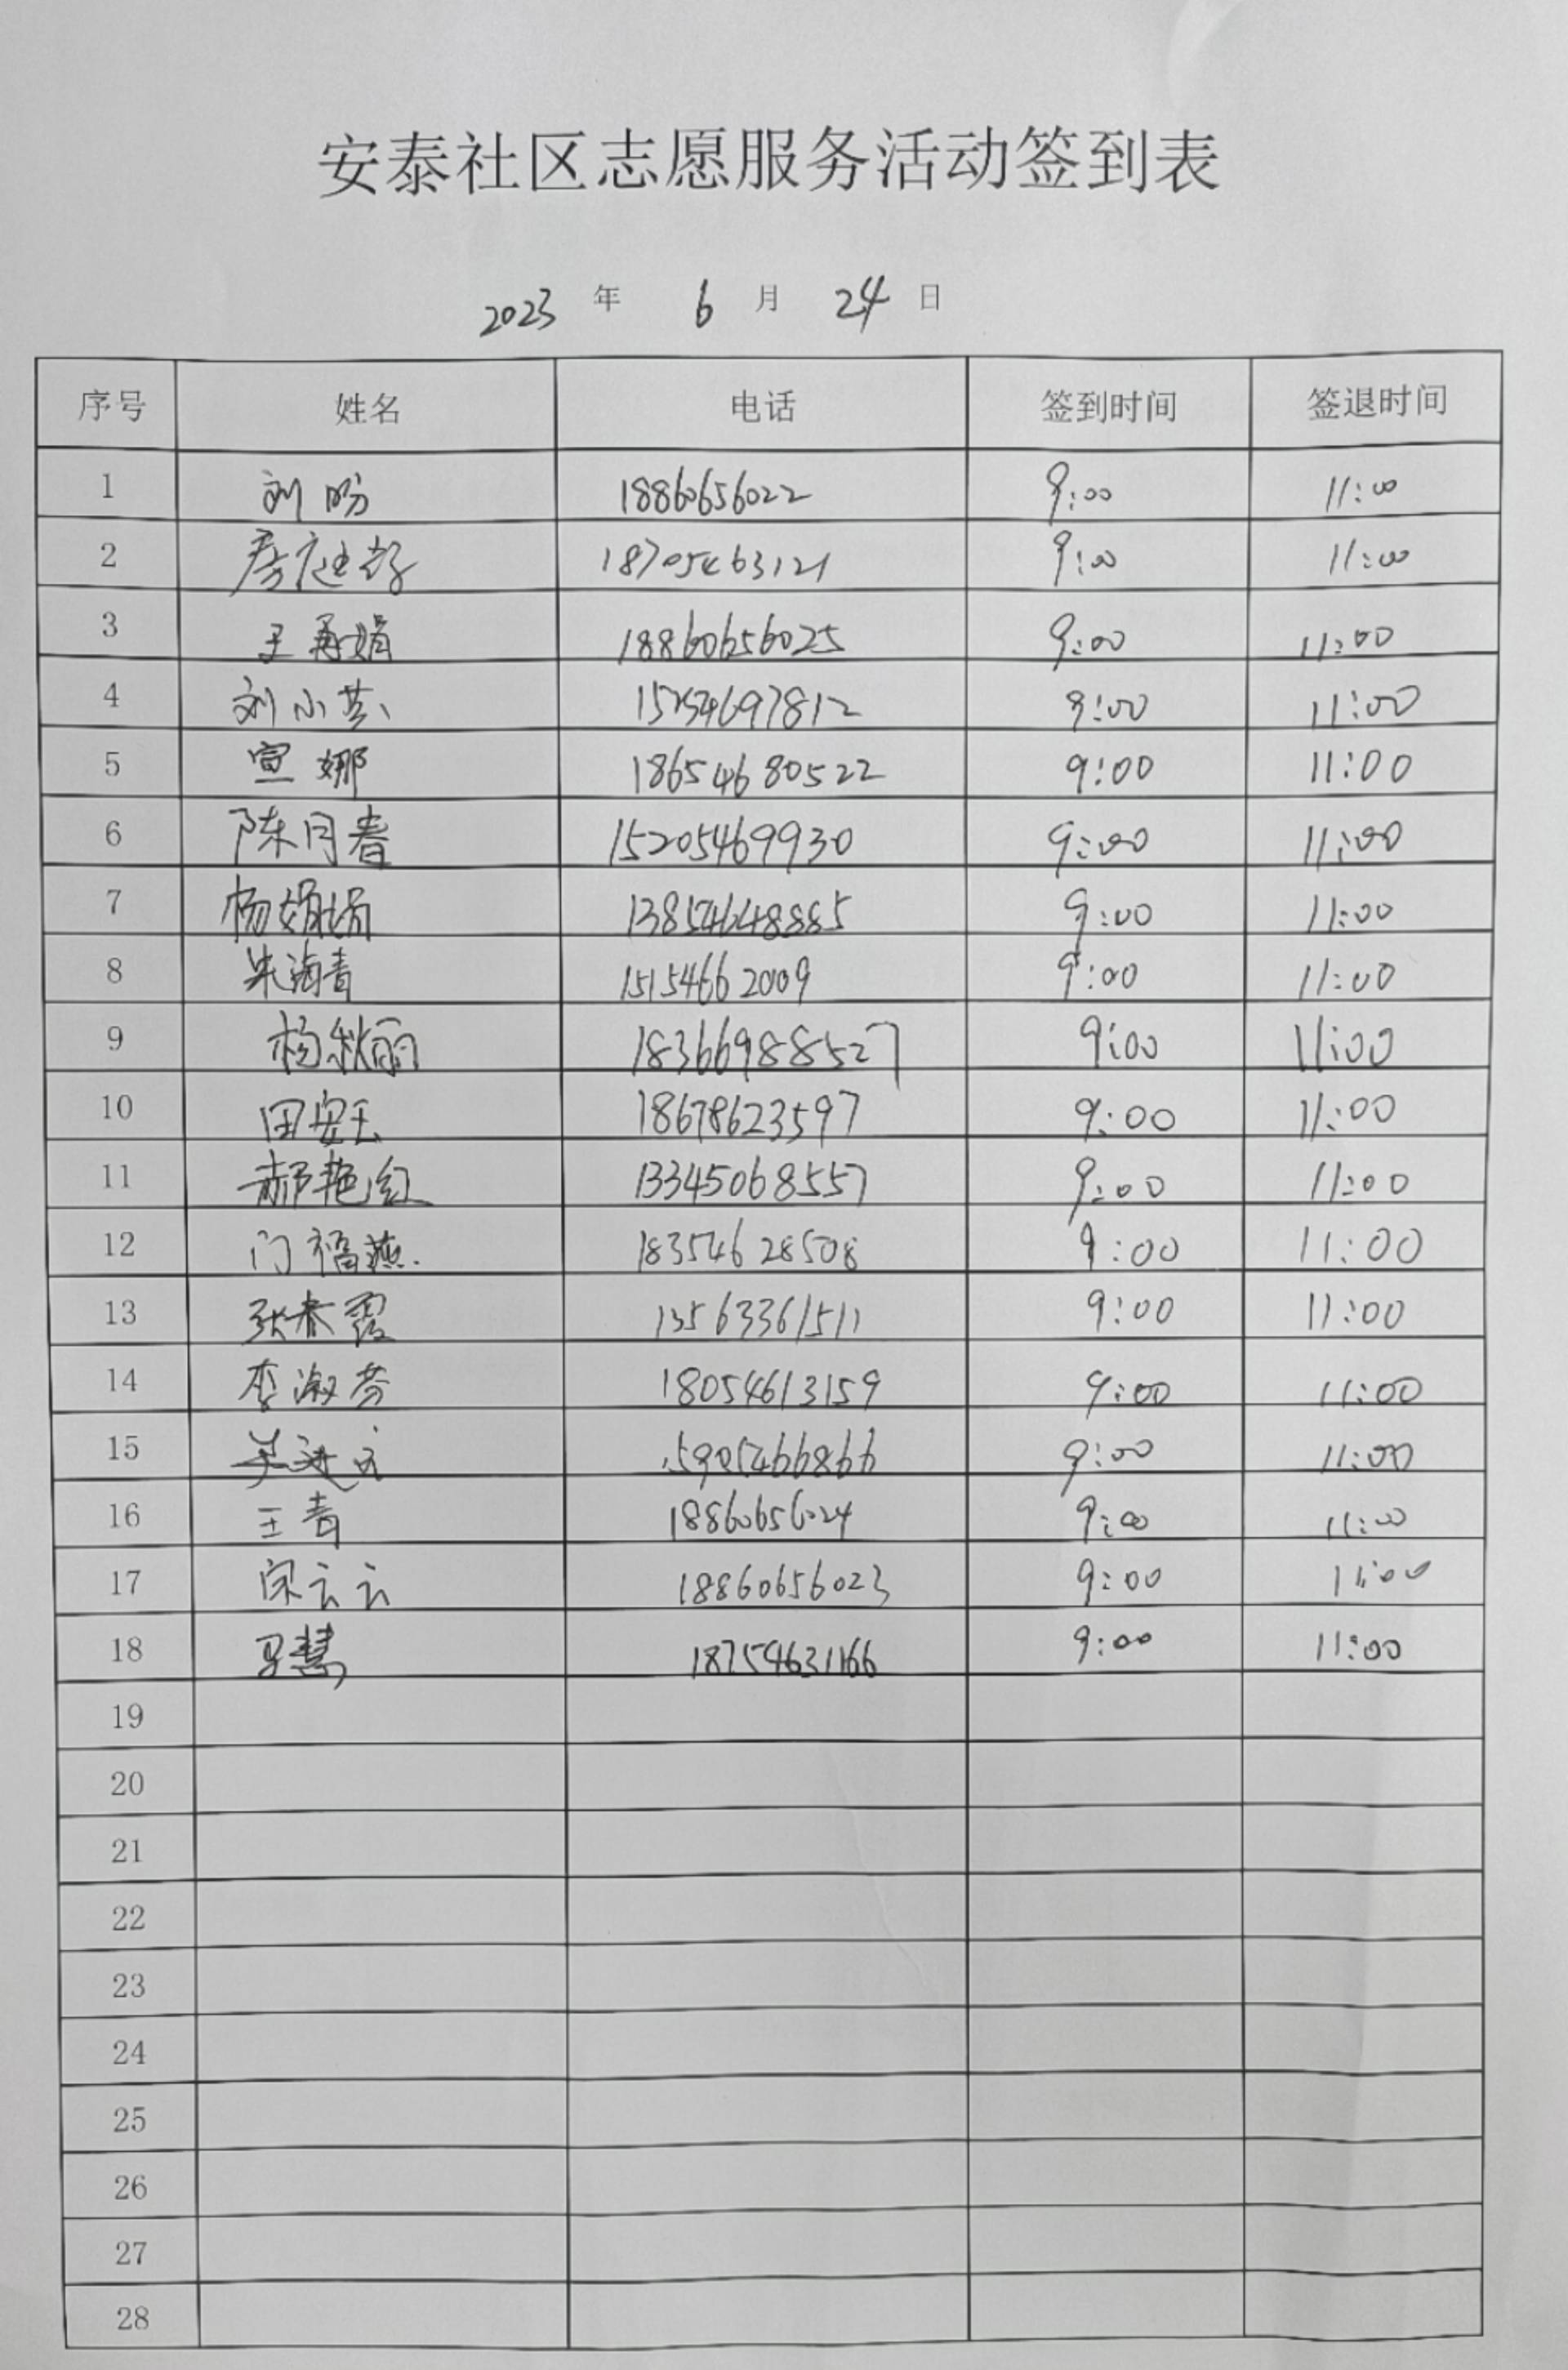 安泰社区志愿服务活动签到表
2023 年 6 月 24 日
序号 姓名 电话 签到时间 签退时间
1 刘盼 18860656022 9:00 11:00
2 18705463121 9:00 11:00
3 王再娟 18860656025 9:00 11:00
4 刘小芸 15254697812 9:00 11:00
5 宣娜 18654680522 9:00 11:00
6 陈月春 15205469930 9:00 11:00
7 杨娟娟 13854648885 9:00 11:00
8 朱海青 15154662009 9:00 11:00
9 杨秋丽 18366988527 9:00 11:00
10 田安玉 18678623597 9:00 11:00
11 郝艳红 13345068557 9:00 11:00
12 门福燕. 18354628508 9:00 11:00
13 张春霞 13563361511 9:00 11:00
14 李淑芬 18054613159 9:00 11:00
15 15905466866 9:00 11:00
16 王青 18860656024 9:00 11:00
17 宋云云 18860656023 9:00 11:00
18 马慧 18754631166 9:00 11:00
19
20
21
22
23
24
25
26
27
28